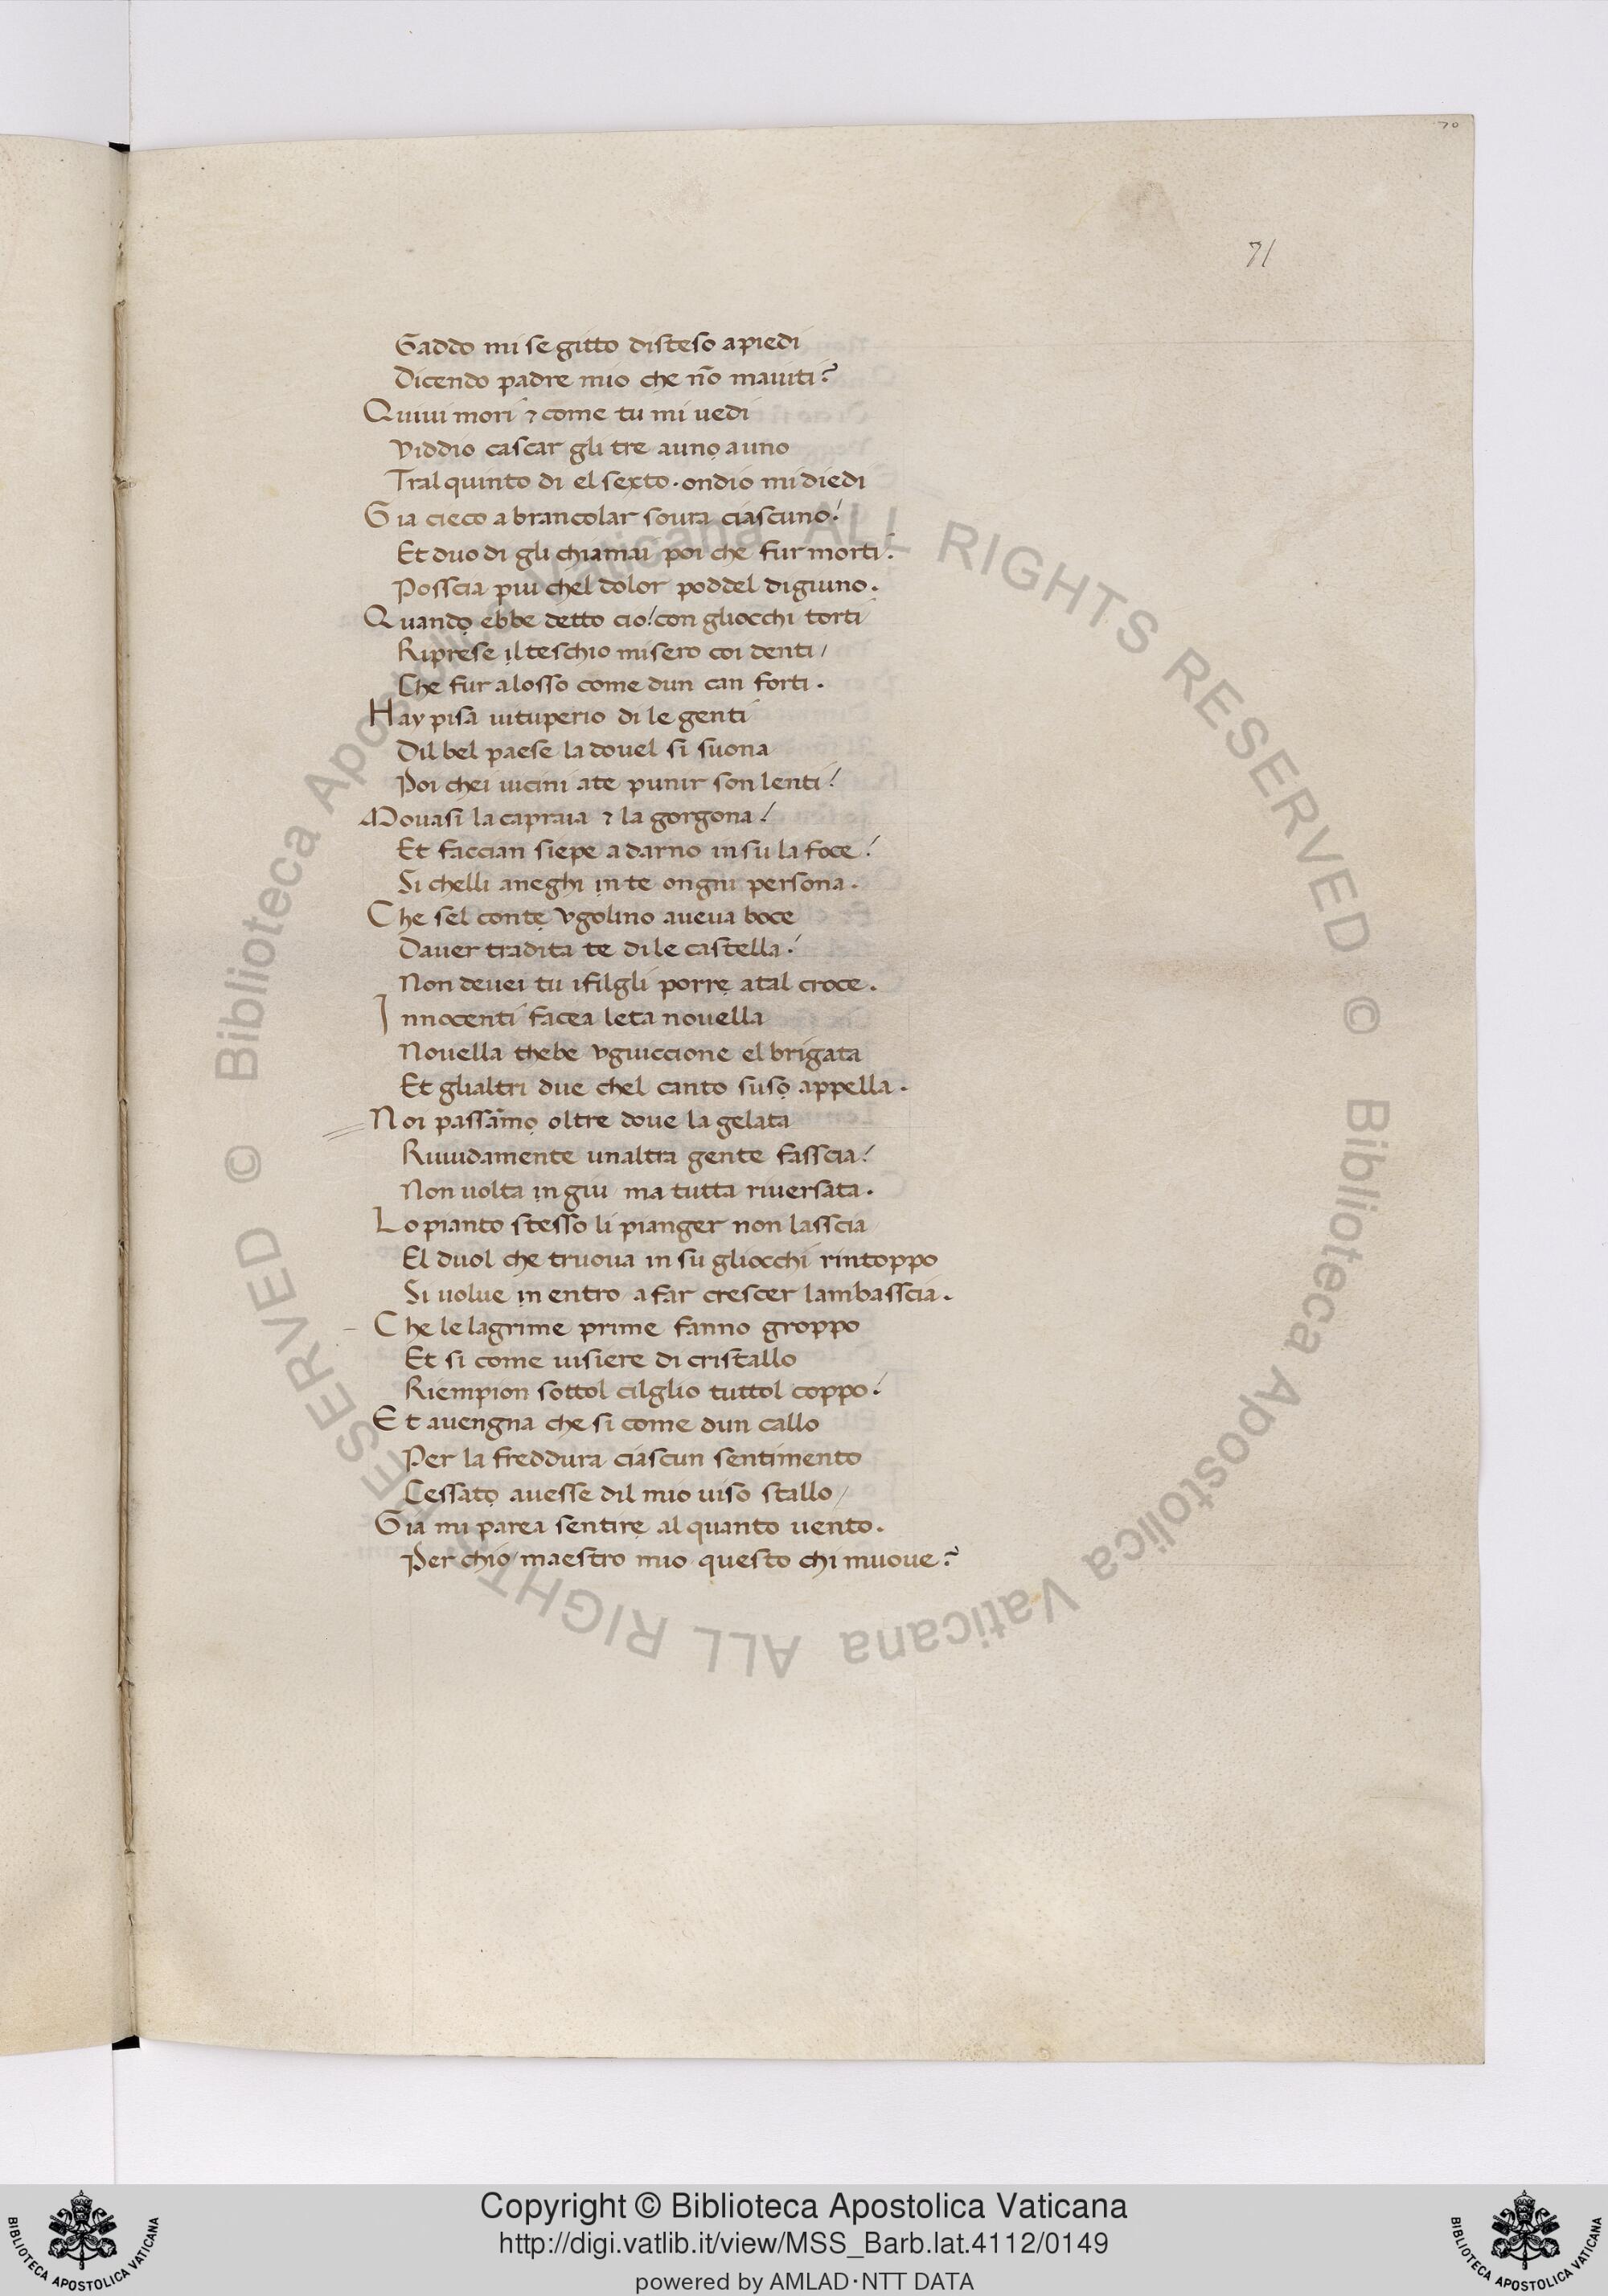 70
71
Gaddo mi se gitto disteso apiedi
Dicendo padre mio che nõ maiuti?
Quiui mori ⁊ come tu mi uedi
viddio cascar gli tre auno auno
Tral quinto di el sexto. ondio mi diedi
Gia cieco a brancolar soura ciascuno!
Et duo di gli chiamai poi che fur morti!
Posscia piu chel dolor poddel digiuno.
Quando ebbe detto cio! con gliocchi torti
Riprese il teschio misero coi denti/
Che fur alosso come dun can forti.
Hay pisa uituperio di le genti
Dil bel paese la douel si suona
Poi chei uicini ate punir son lenti!
Mouasi la capraia ⁊ la gorgona!
Et faccian siepe a darno in su la foce!
Si chelli aneghi in te ongni persona.
Che sel conte vgolino aueua boce
Dauer tradita te di le castella!
Non deuei tu ifilgli porre atal croce.
Innocenti facea leta nouella
Nouella thebe vguiccione el brigata
Et glialtri due chel canto suso appella.
Noi passamo oltre doue la gelata
Ruuidamente unaltra gente fasscia!
Non uolta in giu ma tutta riuersata.
Lo pianto stesso li pianger non lasscia
El duol che truoua in su gliocchi rintoppo
Si uolue in entro a far crescer lambasscia.
Che le lagrime prime fanno groppo
Et si come uisiere di cristallo
Riempion sottol cilglio tuttol coppo!
Et auengna che si come dun callo
Per la freddura ciascun sentimento
Cessato auesse dil mio uiso stallo/
Gia mi parea sentire al quanto uento.
Per chio/ maestro mio questo chi muoue?
© Biblioteca Apostolica Vaticana ALL RIGHTS RESERVED © Biblioteca Apostolica Vaticana ALL RIGHTS RESERVED
BIBLIOTECA APOSTOLICA VATICANA
Copyright © Biblioteca Apostolica Vaticana
http://digi.vatlib.it/view/MSS_Barb.lat.4112/0149
powered by AMLAD·NTT DATA
BIBLIOTECA APOSTOLICA VATICANA